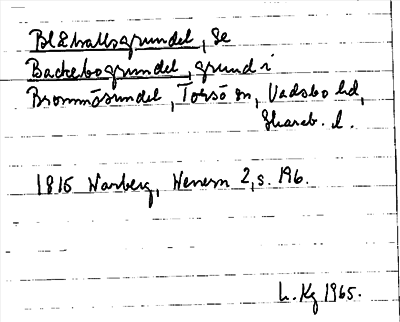 Blåhallsgrundet, se
Backebogrundet, grund i
Brommösundet, Torsö sn, Vadsbo hd,
Skarab. l.
1815 Warberg, Wenern 2, s. 196.
L. Kg 1965.